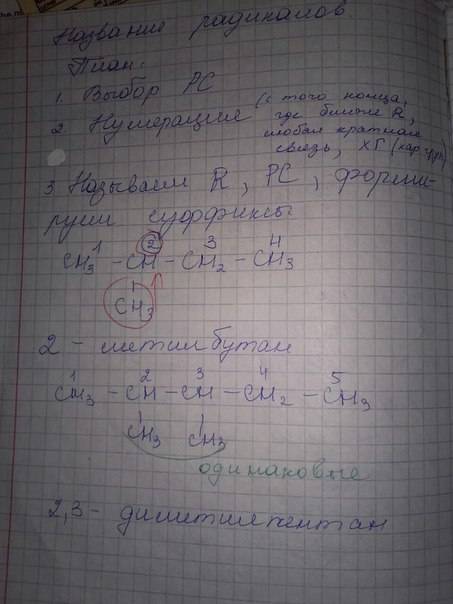 Название радикалов.
План:
1. Выбор РС
2. Нумерация (с того конца,
где ближе R,
любая кратная
связь, ХГ (хар. груп)
3. Называем R, РС, форми-
руем суффиксы
1 2 3 4
CH3 - CH - CH2 - CH3
CH3
2 - метилбутан
1 2 3 4 5
CH3 - CH - CH - CH2 - CH3
CH3 CH3
одинаковые
2,3 - диметилпентан